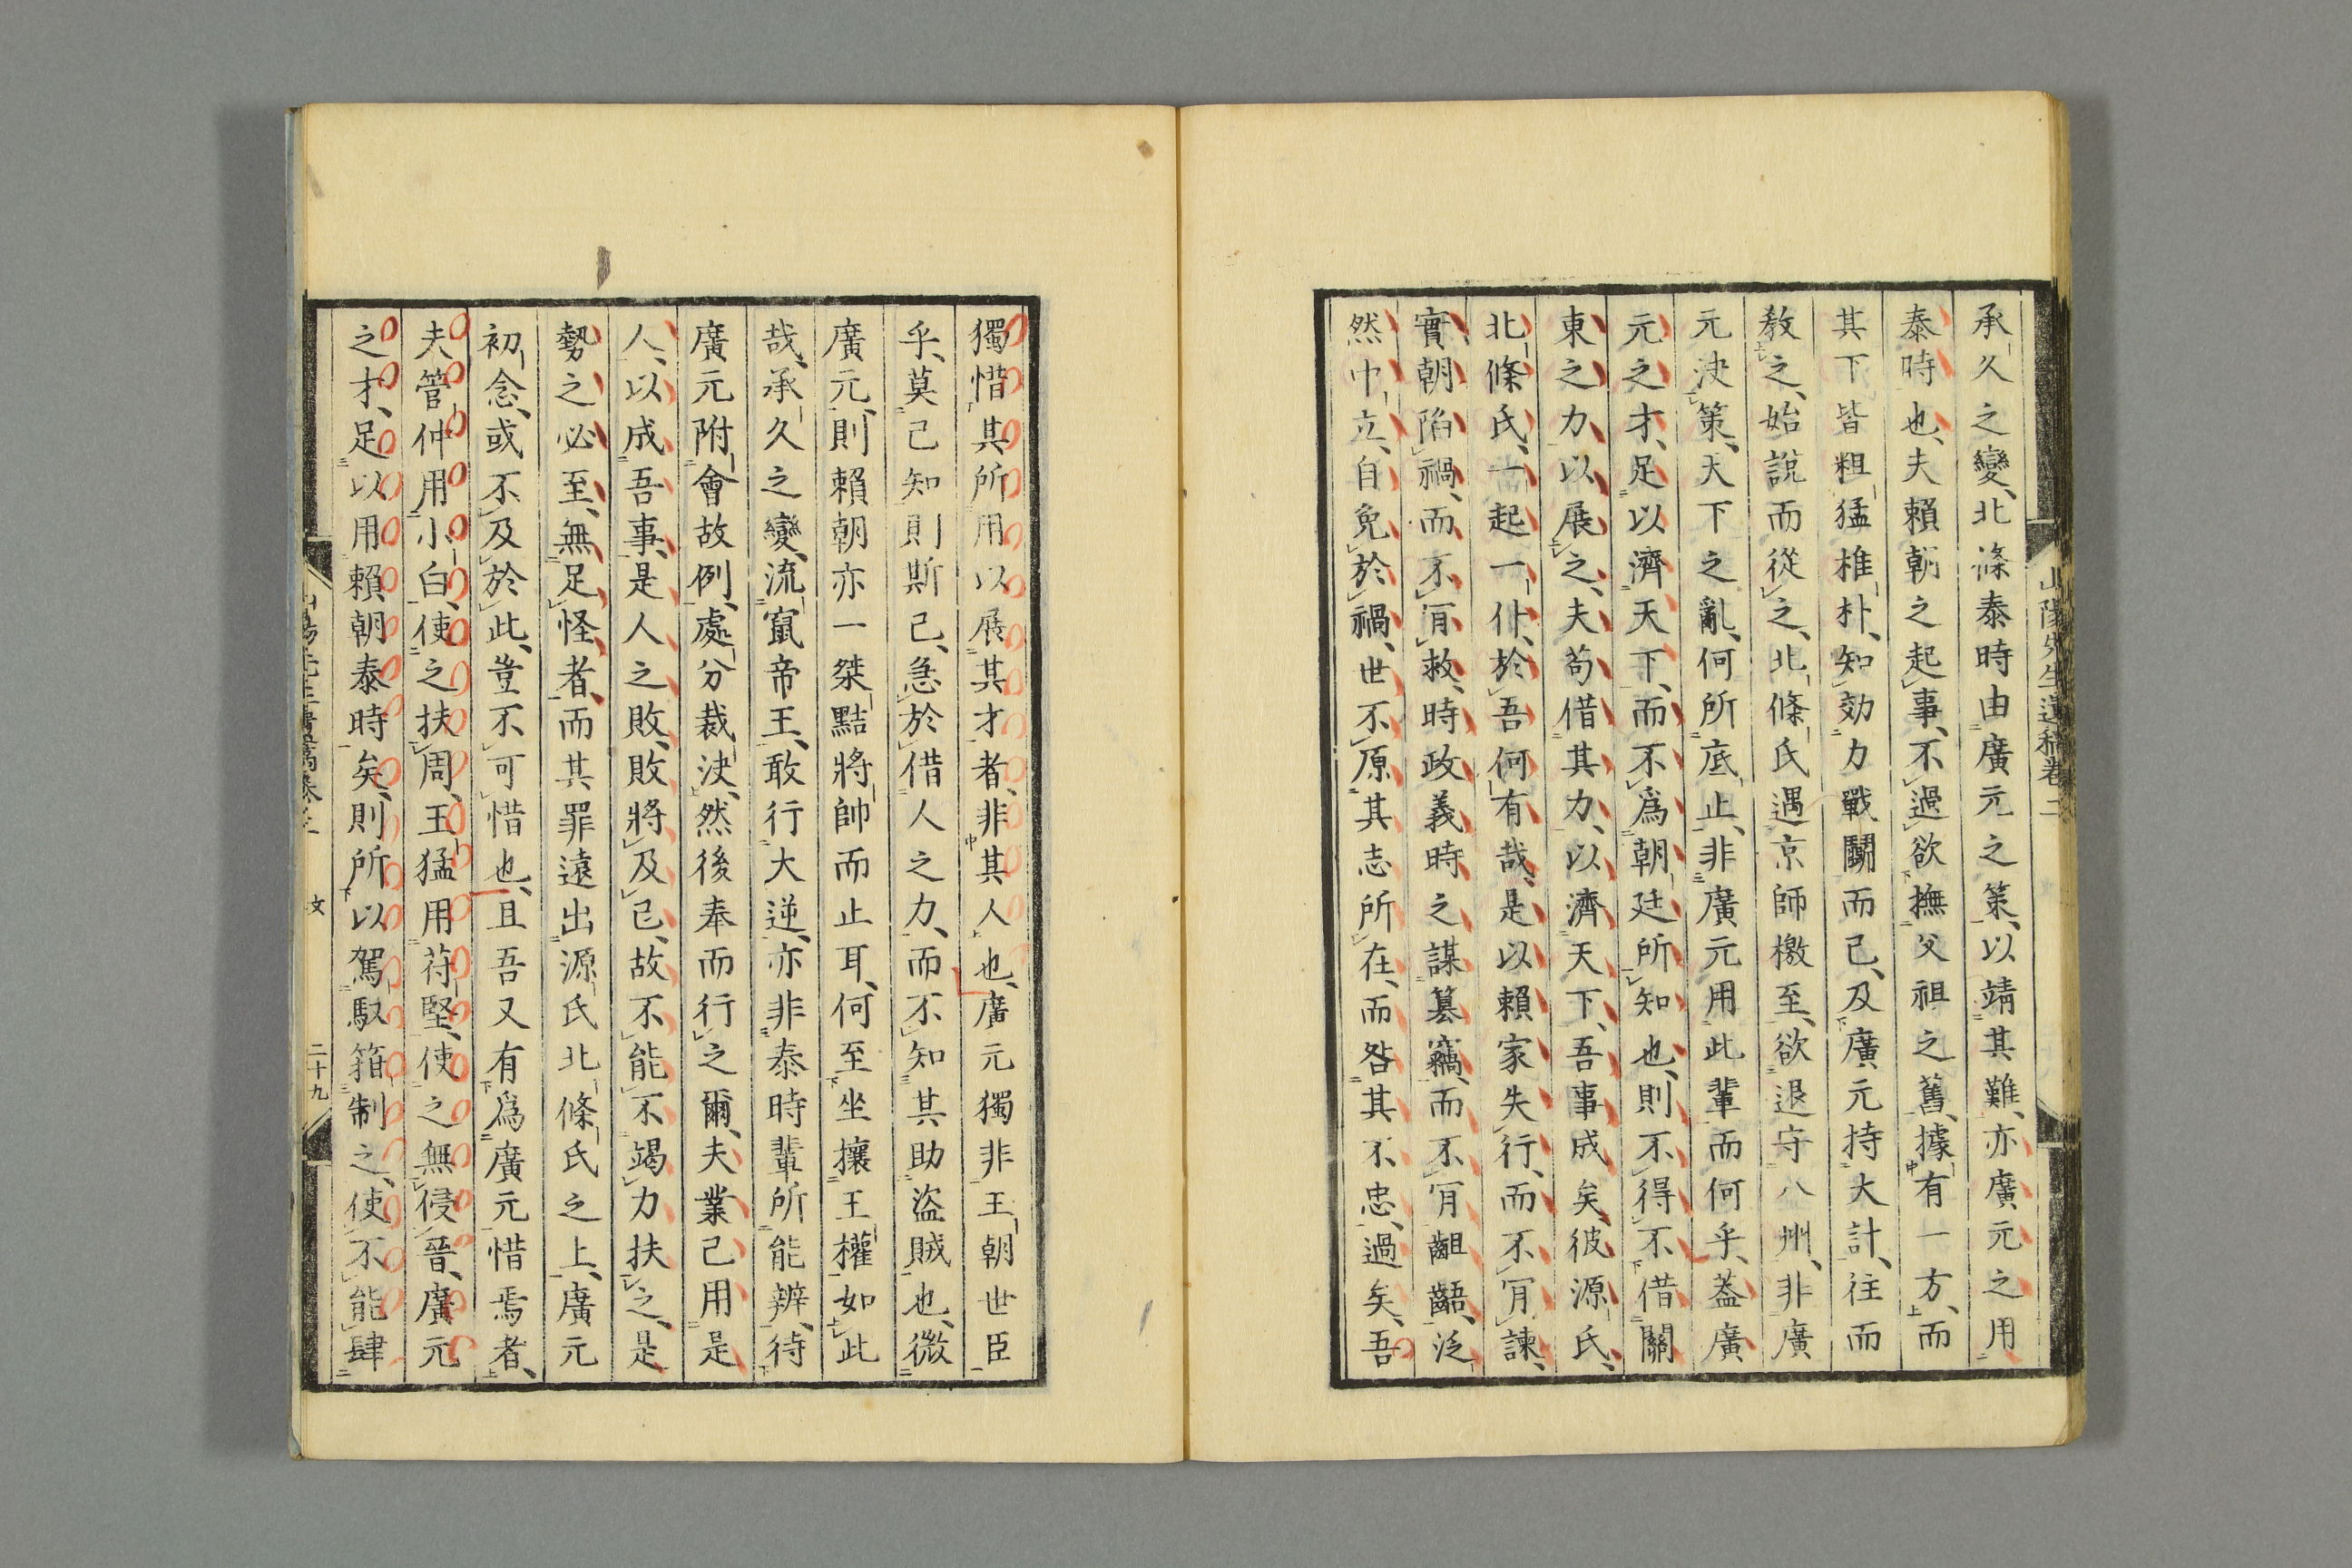 承久之變、北條泰時由廣元之策、以靖其難、亦廣元之用
泰時也、夫賴朝之起事、不過欲撫父祖之舊、據有一方、而
其下皆粗猛椎朴、知効力戰鬭而已、及廣元持大計、往而
教之、始說而從之、北條氏遇京師檄至、欲退守八州、非廣
元決策、天下之亂、何所底止、非廣元用此輩而何乎、蓋廣
元之才、足以濟天下、而不爲朝廷所知也、則不得不借關
東之力、以展之、夫苟借其力、以濟天下、吾事成矣、彼源氏、
北條氏、一起一仆、於吾何有哉、是以賴家失行、而不肎諫、
實朝陷禍、而不肎救、時政義時之謀篡竊、而不肎齟齬、泛
然中立、自免於禍、世不原其志所在、而咎其不忠、過矣、吾
山陽先生遺稿卷二
獨惜其所用以展其才者、非其人也、廣元獨非王朝世臣
乎、莫己知則斯已、急於借人之力、而不知其助盜賊也、微
廣元、則賴朝亦一桀黠將帥而止耳、何至坐攘王權如此
哉、承久之變、流竄帝王、敢行大逆、亦非泰時輩所能辨、待
廣元附會故例、處分裁決、然後奉而行之爾、夫業已用是
人、以成吾事、是人之敗、敗將及己、故不能不竭力扶之、是
勢之必至、無足怪者、而其罪遠出源氏北條氏之上、廣元
初念、或不及於此、豈不可惜也、且吾又有爲廣元惜焉者、
夫管仲用小白、使之扶周、王猛用苻堅、使之無侵晉、廣元
之才、足以用賴朝泰時矣、則所以駕馭箝制之、使不能肆
文
二十九